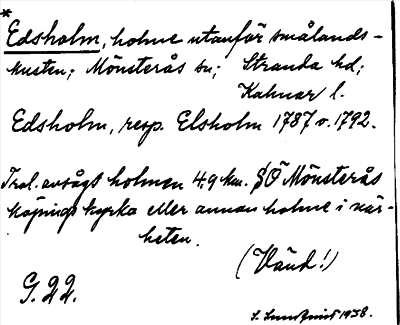 *
Edsholm, holme utanför smålands-
kusten; Mönsterås sn; Stranda hd;
Kalmar l.
Edsholm, resp. Elsholm 1787 o. 1792.
Trol. avsågs holmen 4,9 km. SÖ Mönsterås
köpings kyrka eller annan holme i när-
heten.
(Vänd!)
G. 22.
S. 1938.